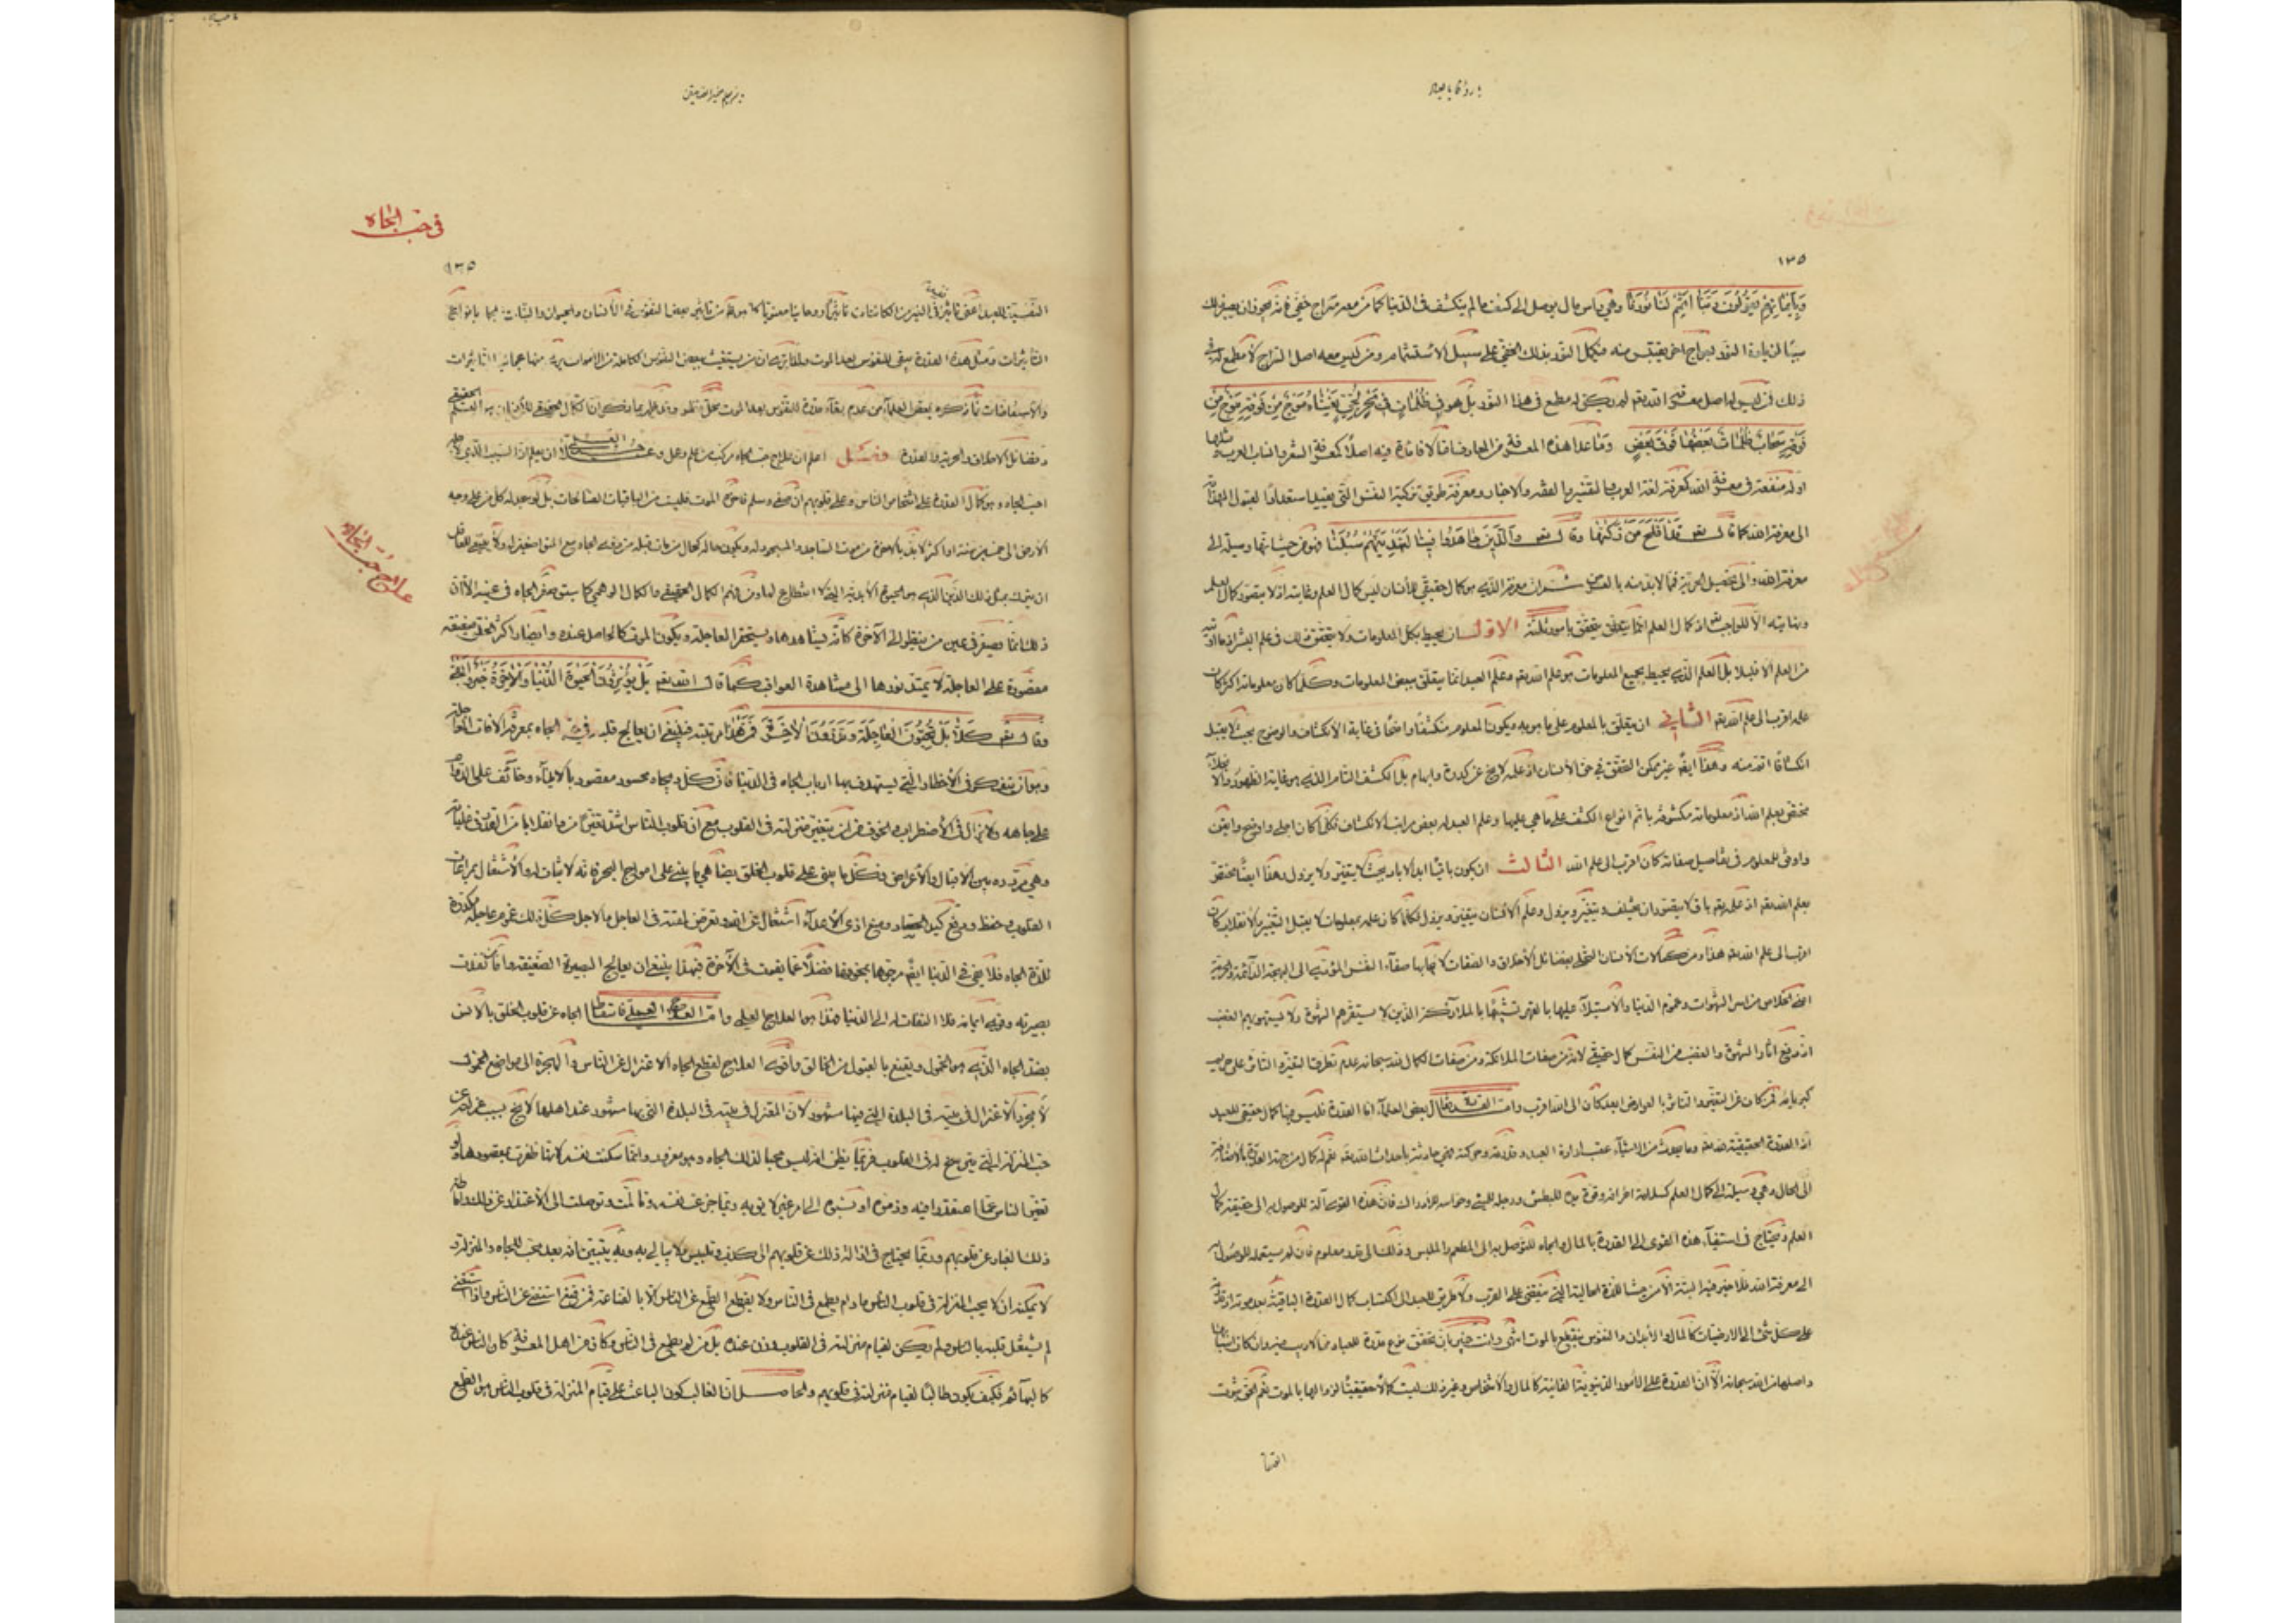 ١٣٥
وَبِأَيْمَانِهِمْ يَقُولُونَ رَبَّنَا أَتْمِمْ لَنَا نُورَنَا وهي رأس مال يوصل الى كشف ما لم ينكشف في الدنيا كما ان من معه سراج خفي فانه يجوز ان يصير ذلك
سببا لزيادة النور بسراج آخر يقتبس منه فيكمل النور بذلك الخفي على سبيل الاستتمام ومن ليس معه اصل السراج لا مطمع له في
ذلك فمن ليس له اصل معرفة الله تعه لم يكن له مطمع في هذا النور بل هو في ظُلُمَاتٍ فِي بَحْرٍ لُجِّيٍّ يَغْشَاهُ مَوْجٌ مِنْ فَوْقِهِ مَوْجٌ مِنْ
فَوْقِهِ سَحَابٌ ظُلُمَاتٌ بَعْضُهَا فَوْقَ بَعْضٍ وما عدا هذه المعرفة من المعارف اما لا فائدة فيه اصلا كمعرفة الشعر وانساب العرب ومثلها
او له منفعة في معرفة الله كمعرفة لغة العرب والتفسير والفقه والاخبار ومعرفة طريق تزكية النفس التي يفيد استعدادا لقبول الهداية
الى معرفة الله كما قال تعه قَدْ أَفْلَحَ مَنْ زَكَّيٰهَا وقال تعه وَالَّذِينَ جَاهَدُوا فِينَا لَنَهْدِيَنَّهُمْ سُبُلَنَا فهو من حيث انها وسيلة الى
معرفة الله والى تحصيل الحرية مما لابد منه بالعرض ثم ان معرفة الله الذي هو كمال حقيقي للانسان ليس كمال العلم وغايته اذ لا يتصور كمال العلم
ونهايته الا للواجب تعه اذ كمال العلم انما يتحقق بامور ثلثة الاول ان يحيط بكل المعلومات ولا يتحقق ذلك في علم البشر اذ ما اوتيه
من العلم الا قليلا بل العلم الذي يحيط بجميع المعلومات هو علم الله تعه وعلم العبد انما يتعلق ببعض المعلومات وكلما كان معلوماته اكثر كان
علمه اقرب الى علم الله تعه الثاني ان يتعلق بالمعلوم على ما هو به ويكون المعلوم منكشفا واضحا في غاية الانكشاف والوضوح بحيث لا يقبل
انكشافا اتم منه وهذا ايضا غير ممكن التحقق في حق الانسان اذ علمه لا يخ عن كدرة وابهام بل الكشف التام الذي هو غاية الظهور والانجلاء
مختص بعلم الله اذ معلوماته مكشوفة باتم انواع الكشف على ما هي عليها وعلم العبد له بعض مراتب الانكشاف فكلما كان اجلى واوضح واتقن
واوفق للمعلوم في تفاصيل صفاته كان اقرب الى علم الله الثالث ان يكون باقيا ابد الاباد بحيث لا يتغير ولا يزول وهذا ايضا مختص
بعلم الله تعه اذ علمه تعه باق لا يتصور ان يختلف ويتغير ويزول وعلم الانسان يتغير ويزول فكلما كان علمه بمعلومات لا يقبل التغير والانقلاب كان
اقرب الى علم الله تعه هذا ومن كمالات الانسان التحلي بفضائل الاخلاق والصفات لايجابها صفاء النفس المؤدية الى البهجة الدائمة والحرية
اعني الخلاص من اسر الشهوات وغموم الدنيا والاستيلاء عليها بالقهر تشبها بالملائكة الذين لا يستفزهم الشهوة ولا يستهويهم الغضب
اذ دفع آثار الشهوة والغضب من النفس كمال حقيقي لانه من صفات الملائكة ومن صفات الكمال لله سبحانه عدم تطرق التغير والتأثر على حريم
كبريائه فمن كان عن التغير والتأثر بالعوارض ابعد كان الى الله اقرب واما القدرة فقال بعض العلماء انا القدرة فليس فيها كمال حقيقي للعبد
اذ القدرة الحقيقية لله تعه وما يحدث من الاشياء عقيب ارادة العبد وقدرته وحركته فهي حادثة باحداث الله تعه نعم له كمال من جهة القدرة بالاضافة
الى الحال وهي وسيلة الى كمال العلم كسلامة اطرافه وقوة يده للبطش ورجله للمشي وحواسه للادراك فان هذه القوى آلة للوصول به الى حقيقة كمال
العلم وقد يحتاج في استيفاء هذه القوى الى القدرة بالمال والجاه للتوصل به الى المطعم والملبس وذلك الى قدر معلوم فان لم يستعمله للوصول به
الى معرفة الله فلا خير فيه البتة الا من حيث اللذة الحالية التي تنقضي على القرب ولا طريق للعبد الى اكتساب كمال القدرة الباقية بعد موته اذ قدرته
على كل شئ الى الارضيات كالمال والابدان والنفوس ينقطع بالموت انتهى وانت خبير بان تحقق نوع قدرة للعباد مما لا ريب فيه وان كان اسبابها
واصلها من الله سبحانه الا ان القدرة على الامور الدنيوية الفانية كالمال والاشخاص وغير ذلك ليست كمالا حقيقيا لزوالها بالموت نعم الحق ثبوت
في حب الجاه
١٣٥
النفسية للعبد اعني تأثير نفسه في الغير من الكائنات تأثيرا روحانيا معنويا كما هو ظ من تأثير بعض النفوس في الانسان والحيوان والنبات فيها بانواع
التأثيرات ومثل هذه القدرة يبقى للنفوس بعد الموت ولذا ترى ان من يستغيث ببعض النفوس الكاملة من الاموات يرى منها عجائب التأثيرات
والاستفاضات فما ذكره بعض العلماء من عدم بقاء قدرة للنفوس بعد الموت محل نظر وقد ظهر بما ذكر ان الكمال الحقيقي للانسان هو العلم الحقيقي
وفضائل الاخلاق والحرية والقدرة فصل اعلم ان علاج حب الجاه مركب من علم وعمل وعلاجه العلمي ان يعلم ان السبب الذي لاجله
احب الجاه وهو كمال القدرة على اشخاص الناس وعلى قلوبهم ان صفى وسلم فآخره الموت فليست من الباقيات الصالحات بل لو سجد له كل من على وجه
الارض الى خمسين سنة او اكثر لابد بالاخرة من موت الساجد والمسجود له ويكون حاله كحال من مات قبله من ذوي الجاه مع المتواضعين له ولا ينبغي للعاقل
ان يترك بمثل ذلك الدين الذي هو الحيوة الابدية التي لا انقطاع لها ومن فهم الكمال الحقيقي والكمال الوهمي كما سبق صغر الجاه في عينه الا ان
ذلك انما يصغر في عين من ينظر الى الآخرة كأنه يشاهدها ويستحقر العاجلة ويكون الموت كالحاصل عنده وابصار اكثر الخلق ضعيفة
مقصورة على العاجلة لا يمتد نورها الى مشاهدة العواقب كما قال الله تعه بَلْ تُؤْثِرُونَ الْحَيٰوةَ الدُّنْيَا وَالْآخِرَةُ خَيْرٌ وَأَبْقَىٰ
وقال تعه كَلَّا بَلْ تُحِبُّونَ الْعَاجِلَةَ وَتَذَرُونَ الْآخِرَةَ فمن هذا مرتبته فينبغي ان يعالج قلبه من حب الجاه بمعرفة الآفات العاجلة
وهو ان يتفكر في الاخطار التي يستهدف بها ارباب الجاه في الدنيا فان كل ذي جاه محسود مقصود بالايذاء وخائف على الدوام
على جاهه ولا يزال في الاضطراب والخوف من ان يتغير منزلته في القلوب مع ان قلوب الناس اشد تغيرا من القدر في غليانه
وهي مترددة بين الاقبال والاعراض فكل ما يبنى على قلوب الخلق يضاهي ما يبنى على امواج البحر فانه لا ثبات له والاشتغال بمراعات
القلوب وحفظ ودفع كيد الحساد ومنع اذى الاعداء اشتغال عن الله وتعرض لمقته في العاجل والآجل كل ذلك غموم عاجلة مكدرة
للذة الجاه فلا يخ في الدنيا ايضا مرجوها بمخوفها فضلا عما يفوت في الآخرة فبهذا ينبغي ان يعالج البصيرة الضعيفة واما من نفذت
بصيرته وقوى ايمانه فلا التفات له الى الدنيا فهذا هو العلاج العلمي واما العلاج العملي فاسقاط الجاه عن قلوب الخلق بالانس
بضد الجاه الذي هو الخمول ويقنع بالقبول من الخالق واقوى العلاج لقطع الجاه الاعتزال عن الناس والهجرة الى مواضع الخمول
لا مجرد الاعتزال في بيته في البلدة التي فيها مشهور لان المعتزل في بيته في البلدة التي بها مشهور عند اهلها لا يخ بسبب عزلته عن
حب المنزلة التي يترسخ له في القلوب فربما يظن انه ليس محبا لذلك الجاه وهو مغرور وانما سكنت نفسه لانها ظفرت بمقصودها ولو
تغير الناس عما اعتقدوا فيه وذموه او نسبوه الى امر غير لايق به ربما جزعت نفسه وتألمت وتوصلت الى الاعتذار عن ذلك واماطة
ذلك الغبار عن قلوبهم وربما يحتاج في ازالة ذلك عن قلوبهم الى كذب وتلبيس ولا يبالي به وبه يتبين انه بعد محب للجاه والمنزلة و
لا يمكنه ان لا يحب المنزلة في قلوب الناس ما دام يطمع في الناس ولا يقطع الطمع عن الناس الا بالقناعة فمن قنع استغنى عن الناس واذا استغنى
لم يشتغل قلبه بالناس ولم يكن لقيام منزلته في القلوب وزن عنده بل من لم يطمع في الناس وكان من اهل المعرفة كان الناس عنده
كالبهائم فكيف يكون طالبا لقيام منزلته في قلوبهم والحاصل ان الغالب كون الباعث على قيام المنزلة في قلوب الناس هو الطمع
علاج حب الجاه